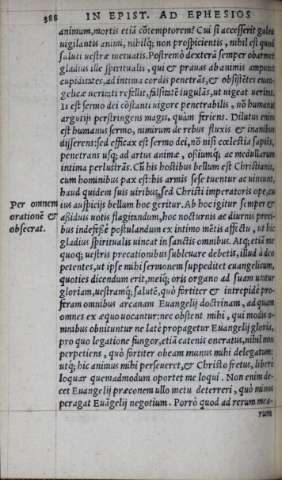 388 IN EPIST. AD EPHESIOS
animum, mortis etiā cōtemptorem? Cui si accesserit galea
vigilantis animi, nihilq; non prospicientis, nihil est quod
saluti uestræ metuatis. Postremò dextera semper obarmet
gladius ille spiritualis, qui & prauas ab animis amputat
cupiditates, ad intima cordis penetrās, & obsistētes euan-
gelicæ ueritati refellit, falsitatē iugulās, ut uigeat ueritas.
Is est sermo dei cōstanti uigore penetrabilis, nō humanis
argutijs perstringens magis, quàm feriens. Dilutus enim
est humanus sermo, nimirum de rebus fluxis & inanibus
disserens: sed efficax est sermo dei, nō nisi cœlestia sapiēs,
penetrans usq; ad artus animæ, ossiumq; ac medullarum
intima perlustrās. Cū his hostibus bellum est Christianis,
cum hominibus pax est: his armis sese tuentur ac uincunt,
haud quidem suis uiribus, sed Christi imperatoris ope, cu
Per omnem ius auspicijs bellum hoc geritur. Ab hoc igitur semper &
orationē & assiduis uotis flagitandum, hoc nocturnis ac diurnis preci-
obsecrat. bus indefessè postulandum ex intimo mētis affectu, ut hic
gladius spiritualis uincat in sanctis omnibus. Atq; etiā me
quoq; uestris precationibus subleuare debetis, illud à deo
petentes, ut ipse mihi sermonem suppeditet euangelicum,
quoties dicendum erit, meiq; oris organo ad suam utatur
gloriam, uestramq; salutē, quò fortiter & intrepidè pro-
feram omnibus arcanam Euangelij doctrinam, ad quam
omnes ex æquo uocantur: nec obstent mihi, qui modis o-
mnibus obnituntur ne latè propagetur Euangelij gloria,
pro quo legatione fungor, etiā catenis oneratus, nihil non
perpetiens, quò fortiter obeam munus mihi delegatum:
utq; hic animus mihi perseueret, & Christo fretus, liberè
loquar quemadmodum oportet me loqui. Non enim de-
cet Euangelij præconem ullo metu deterreri, quò minus
peragat Euāgelij negotium. Porrò quod ad rerum mea-
rum